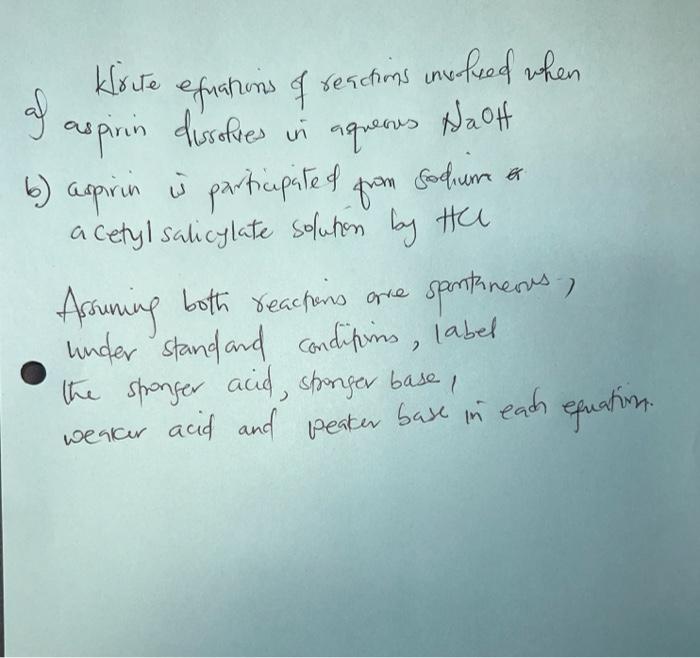 Write equations of reactions involved when
a) aspirin dissolves in aqueous NaOH
b) aspirin is participated from sodium
acetyl salicylate solution by HCl
Assuming both reactions are spontaneous,
under standard conditions, label
the stronger acid, stronger base,
weaker acid and weaker base in each equation.